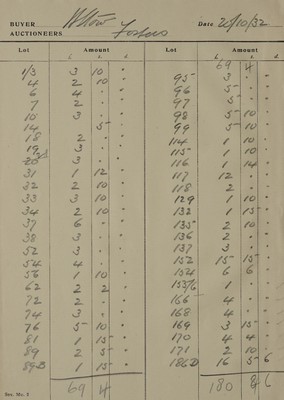 BUYER W Stow Date 20/10/32
AUCTIONEERS Fosters
Lot Amount
£ s. d.
1/3 3 10 "
4 2 10 "
6 4 " "
7 2 " "
10 3 " "
14 5 "
18 2 " "
19 3 " "
20 3 " "
31 1 12 "
32 2 10 "
33 3 10 "
34 2 10 "
37 6 " "
38 3 " "
52 3 " "
54 4 " "
56 1 10 "
62 2 2 "
72 2 " "
74 3 " "
76 5 10 "
81 1 15 "
89 2 5 "
89B 1 15 "
69 4
Lot Amount
£ s. d.
69 4
95 3 "
96 5 "
97 5 "
98 5 10 "
99 5 10 "
114 1 10 "
115 1 10 "
116 1 14 "
117 12 "
118 2 "
129 1 10 "
132 1 15 "
135 2 10 "
136 2 "
137 3 "
152 15 15 "
154 6 6 "
153/6 1 "
166 4 "
168 4 "
169 3 15 "
170 4 4 "
171 2 10 "
186D 16 5 6
180 8 6